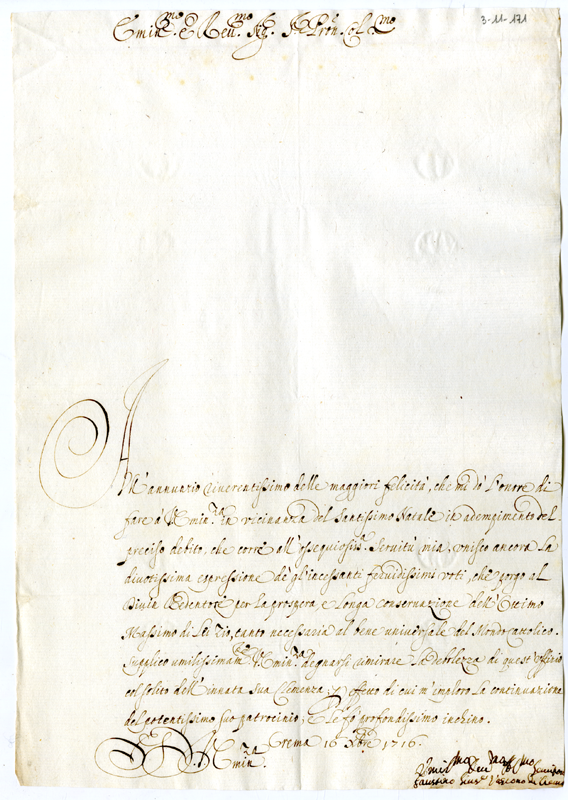 3-11-171
Emin.mo e Reu.mo Sig. Sig. Pron. Col.mo
All'annuario riuerentissimo delle maggiori felicità, che mi dò l'onore di
fare à V. Emin.za in vicinanza del Santissimo Natale in adempimento del
preciso debito, che corre all'ossequiosis.ma Seruitù mia, unisco ancora la
diuotissima espressione de gl'incessanti feruidissimi voti, che porgo al
Diuin Redentore per la prospera e longa conseruazione dell'Ottimo
Massimo di Lei Zio, tanto necessaria al bene uniuersale del Mondo cattolico.
Supplico umilissimam.te V. Emin.za degnarsi rimirare la debolezza di quest'offizio
col solito dell'innata sua Clemenza, p effetto di cui m'imploro la continuazione
del potentissimo suo patrocinio; E le fò profondissimo inchino.
D. V. Emin.za Crema 16 Xbre 1716.
Vmil.mo Deu.mo
Faustino Vescouo di Crema